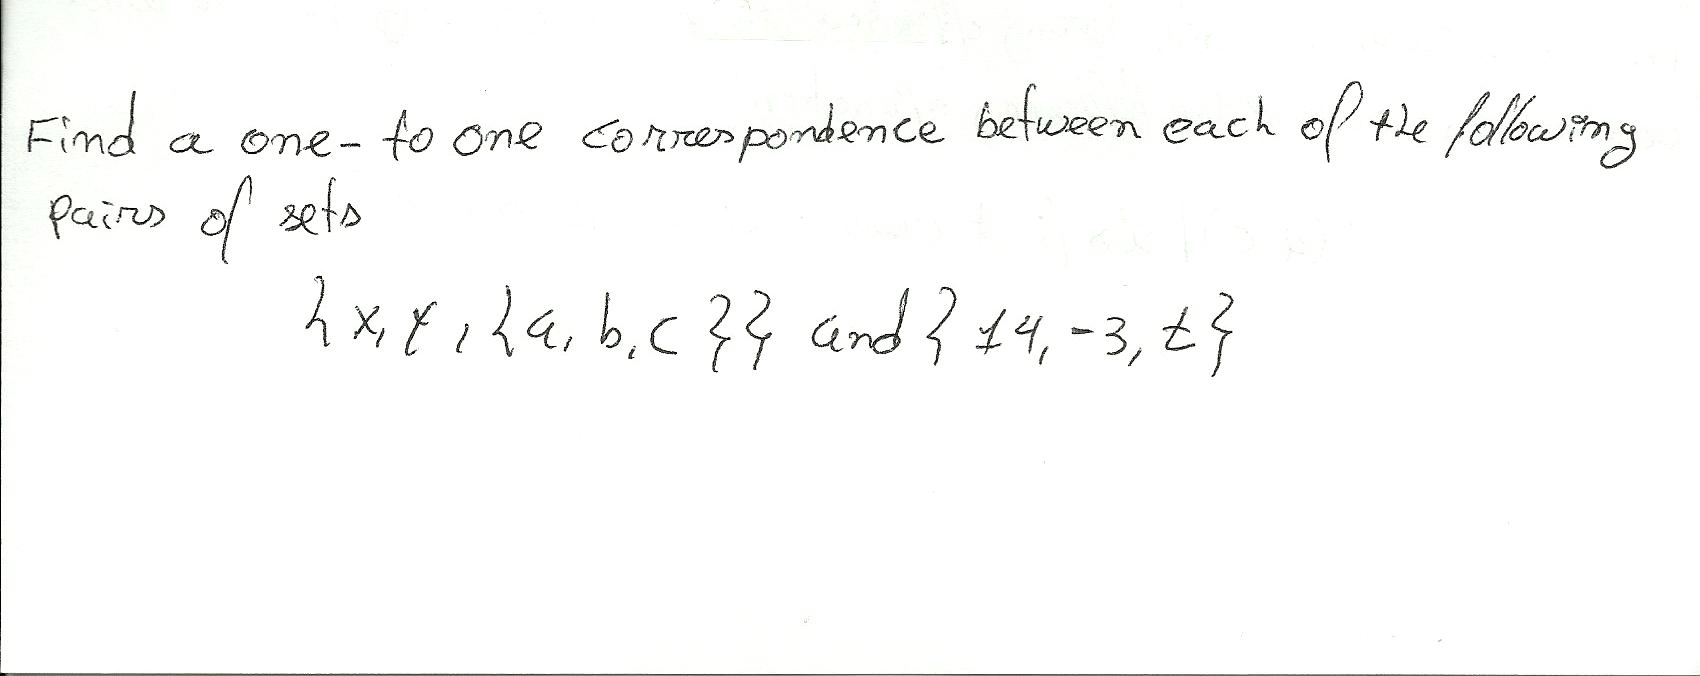 Find a one-to one correspondence between each of the following
pairs of sets
{x, y, {a, b, c}} and { 14, -3, t}